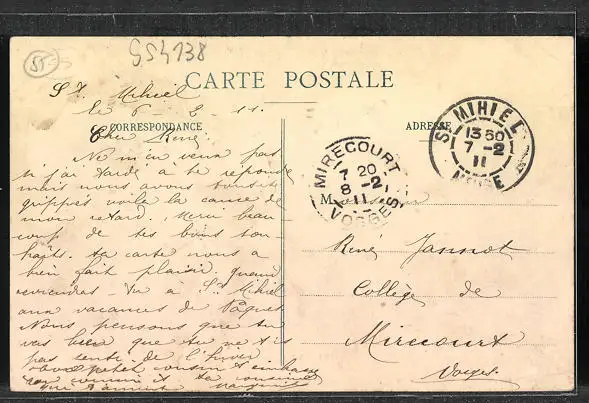 55
554738
CARTE POSTALE
CORRESPONDANCE
ADRESSE
St Mihiel
le 6 - 2 - 11.
Cher René.
Ne m'en veux pas
si j'ai tardé à te répondre
mais nous avons tous été
grippés voilà la cause de
mon retard. Merci beau
coup de tes bons sou
haits. ta carte nous a
bien fait plaisir. Quand
reviendras-tu à St Mihiel
aux vacances de Pâques
Nous pensons que tu
vas bien que tu ne t'es
pas senti de l'hiver
cousin embrasse
ta cousine
qui t'aime Marguerite
ST MIHIEL
13 50
7 - 2
11
MEUSE
MIRECOURT
7 20
8 - 2
11
VOSGES
Monsieur
René Jannot
Collège de
Mirecourt
Vosges